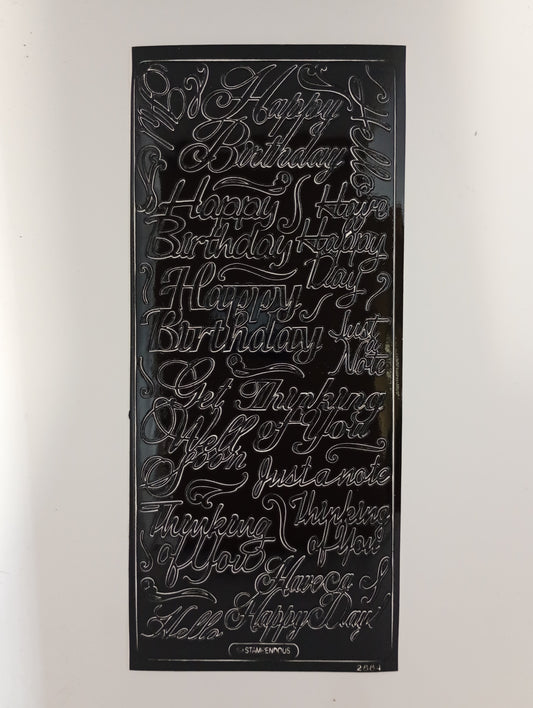 Hi
Happy
Birthday
Hello
Happy
Birthday
Have
Happy
Day
Happy
Birthday
Just
a
Note
Get
Well
Soon
Thinking
of You
Just a note
Thinking
of You
Thinking
of You
Have a
Happy Day!
Hello
STAMPENDOUS